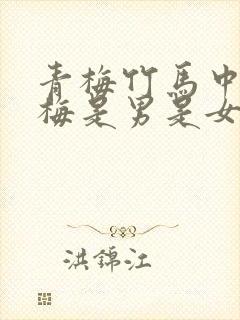 青梅竹馬中
梅是男是女
洪錦江